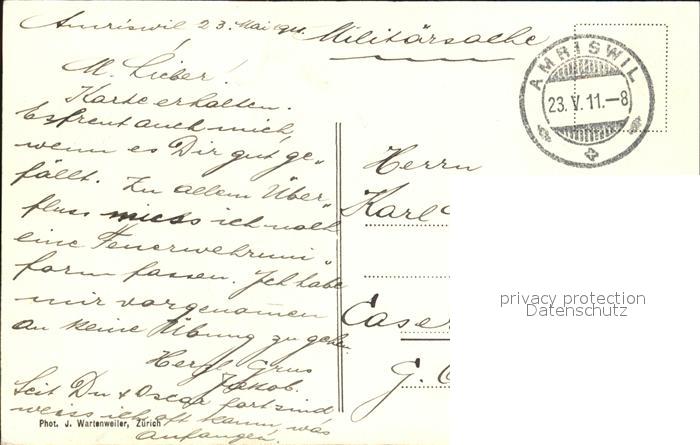 Amriswil 23. Mai 1911.
Militärsache
AMRISWIL
23. V. 11.–8
M. Lieber!
Karte erhalten.
Es freut auch mich,
wenn es Dir gut ge-
fällt. Zu allem Über-
fluss muss ich noch
eine Feuerwehruni-
form fassen. Ich habe
mir vorgenommen
an keine Übung zu gehen.
Herzl. Grus
Jakob.
Seit Du & Oscar fort sind
weiss ich oft kaum, was
anfangen.
Herrn
Karl
Caser
G.
Phot. J. Wartenweiler, Zürich
privacy protection
Datenschutz